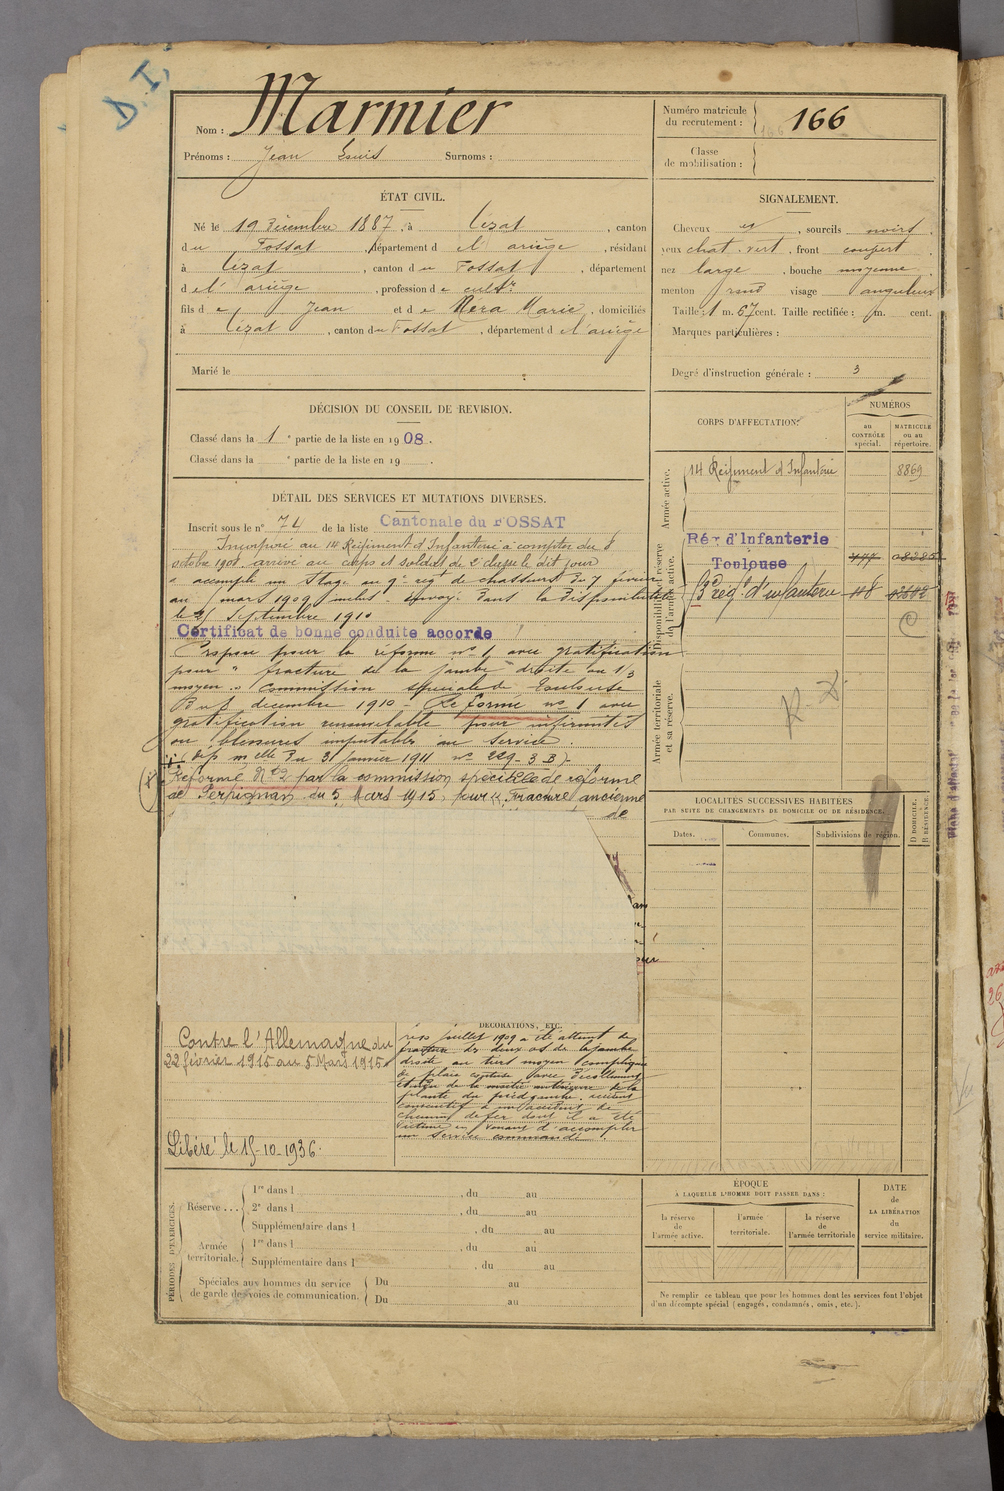 D. I,
Nom : Marmier
Prénoms : Jean Louis Surnoms :
Numéro matricule du recrutement : 166
Classe de mobilisation :
ÉTAT CIVIL.
Né le 19 Décembre 1887, à Lézat, canton
du Fossat, département de l'ariège, résidant
à Lézat, canton du Fossat, département
de l'ariège, profession de cultr
fils de Jean et de Néra Marie, domiciliés
à Lézat, canton du Fossat, département de l'ariège
Marié le
SIGNALEMENT.
Cheveux et, sourcils noirs.
yeux chat. vert, front couvert
nez large, bouche moyenne.
menton rond visage anguleux
Taille : 1 m. 67 cent. Taille rectifiée : m. cent.
Marques particulières :
Degré d'instruction générale : 3
DÉCISION DU CONSEIL DE REVISION.
Classé dans la 1e partie de la liste en 1908.
Classé dans la e partie de la liste en 19 .
CORPS D'AFFECTATION.
NUMÉROS
au CONTRÔLE spécial.
MATRICULE ou au répertoire.
Armée active.
14 Régiment d'Infanterie 8869
Disponibilité et réserve de l'armée active.
Rér d'Infanterie
Toulouse
reg. d'infanterie
Armée territoriale et sa réserve.
R. D.
DÉTAIL DES SERVICES ET MUTATIONS DIVERSES.
Inscrit sous le n° 74 de la liste Cantonale du FOSSAT
Incorporé au 14 Régiment d'Infanterie à compter du 8
octobre 1908. arrivé au corps et soldat de 2 classe le dit jour
a accompli un stage au 9e regt de chasseurs du 7 février
au mars 1909 inclus envoyé dans la disponibilité
le 25 Septembre 1910
Certificat de bonne conduite accordé
Proposé pour la réforme n° 1 avec gratification
pour " fracture de la jambe droite au 1/3
moyen " Commission spéciale de Toulouse
Du décembre 1910 - Réformé n° 1 avec
gratification renouvelable pour infirmités
ou blessures imputables au service.
(dép melle du 31 janvier 1911 n° 229-3 B)
Réformé N°2 par la commission spéciale de réforme
de Perpignan du 5 Mars 1915, pour "Fracture ancienne
de
LOCALITÉS SUCCESSIVES HABITÉES
PAR SUITE DE CHANGEMENTS DE DOMICILE OU DE RÉSIDENCE.
Dates. Communes. Subdivisions de région.
D DOMICILE. R RÉSIDENCE.
Contre l'Allemagne du
22 février 1915 au 5 Mars 1915
Libéré le 15-10-1936.
DÉCORATIONS, ETC.
juillet 1909 a été atteint de
fracture des deux os de la jambe
droite au tiers moyen compliquée
de plaie contuse avec décollement
étendu de la moitié antérieure de la
plante du pied gauche. accident
consécutif à un accident de
chemin de fer dont il a été
victime en venant d'accomplir
un service commandé.
PÉRIODES D'EXERCICES.
Réserve . . . 1re dans l , du au
2e dans l , du au
Supplémentaire dans l , du au
Armée territoriale. 1re dans l , du au
Supplémentaire dans l , du au
Spéciales aux hommes du service de garde des voies de communication. Du au
Du au
ÉPOQUE
À LAQUELLE L'HOMME DOIT PASSER DANS :
la réserve de l'armée active.
l'armée territoriale.
la réserve de l'armée territoriale
DATE de LA LIBÉRATION du service militaire.
Ne remplir ce tableau que pour les hommes dont les services font l'objet
d'un décompte spécial (engagés, condamnés, omis, etc.).